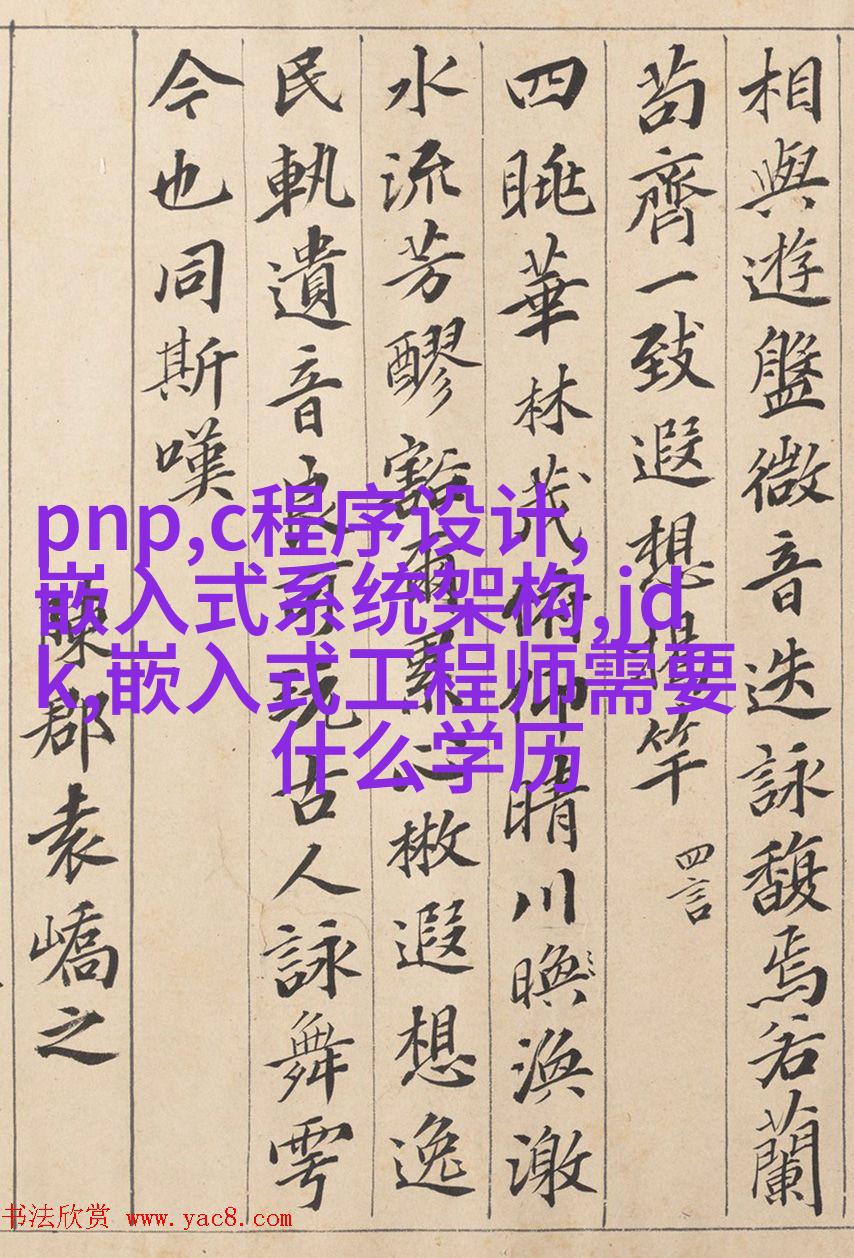 相與遊盤微音迭詠馥焉若蘭
苟齊一致遐想揭竿
四言
四眺華林茂俯仰晴川渙激
水流芳醪豁爾累心散遐想逸
民軌遺音良可玩古人詠舞雩
今也同斯嘆
陳郡袁嶠之
pnp,c程序设计,
嵌入式系统架构,jd
k,嵌入式工程师需要
什么学历
书法欣赏 www.yac8.com